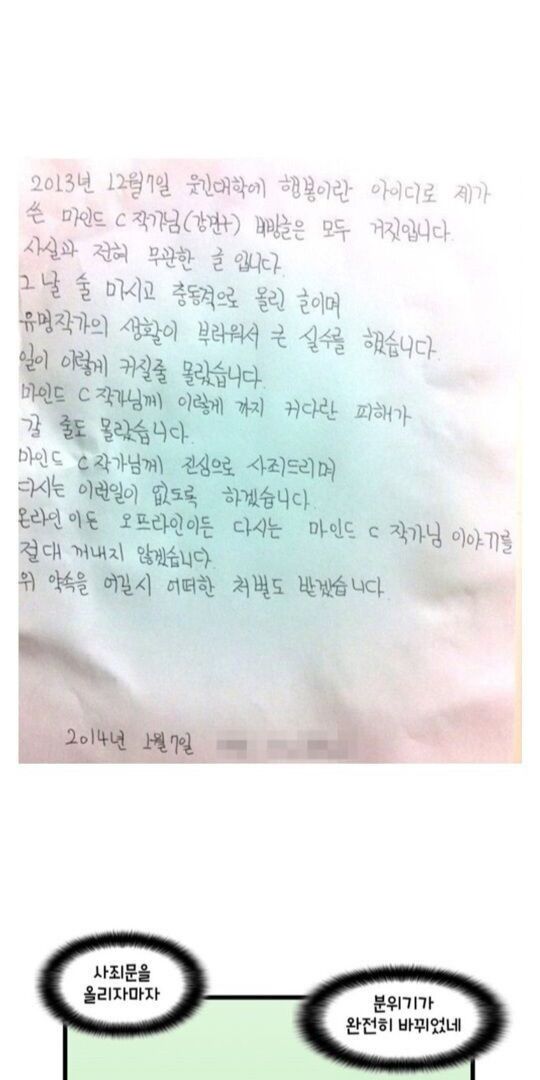 2013년 12월7일 웃긴대학에 행봉이란 아이디로 제가
쓴 마인드 C 작가님 비방글은 모두 거짓입니다.
사실과 전혀 무관한 글 입니다.
그 날 술 마시고 충동적으로 올린 글이며
유명작가의 생활이 부러워서 큰 실수를 했습니다.
일이 이렇게 커질줄 몰랐습니다.
마인드 C 작가님께 이렇게 까지 커다란 피해가
갈 줄도 몰랐습니다.
마인드 C 작가님께 진심으로 사죄드리며
다시는 이런일이 없도록 하겠습니다.
온라인이든 오프라인이든 다시는 마인드 C 작가님 이야기를
절대 꺼내지 않겠습니다.
위 약속을 어길시 어떠한 처벌도 받겠습니다.
2014년 1월7일
사죄문을
올리자마자
분위기가
완전히 바뀌었네